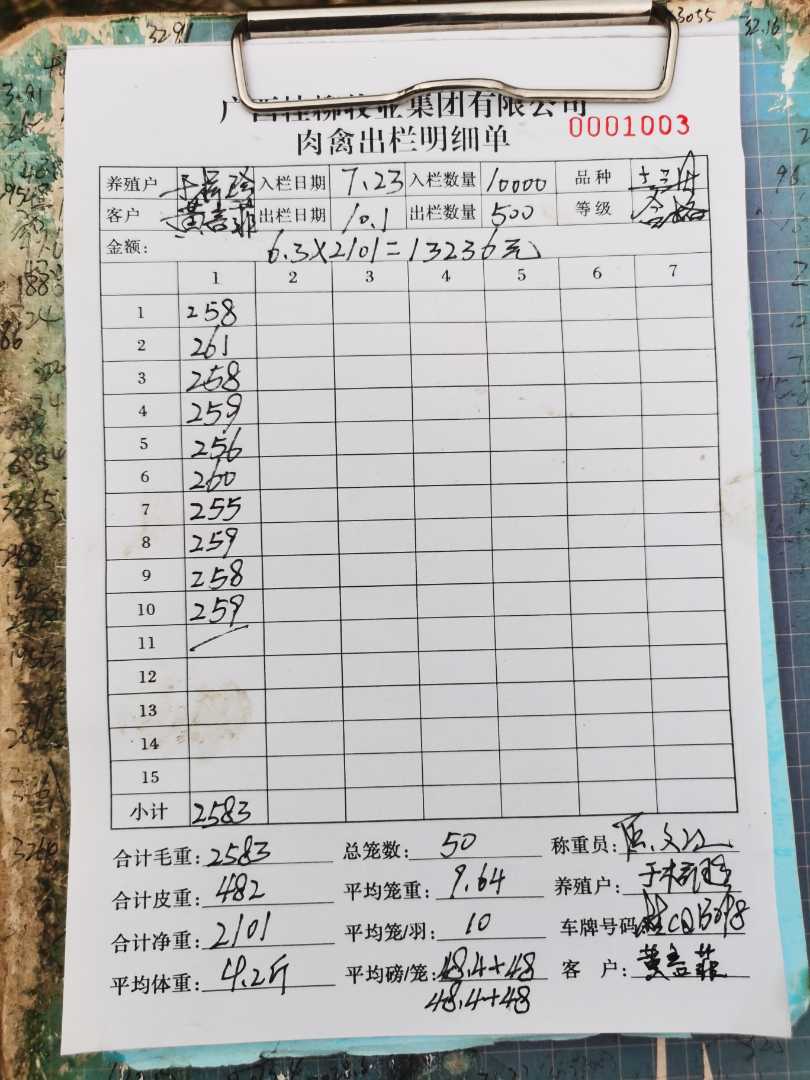 广西桂柳牧业集团有限公司
肉禽出栏明细单 0001003
养殖户 入栏日期 7.23 入栏数量 10000 品种
客户 黄吉菲 出栏日期 10.1 出栏数量 500 等级 合格
金额: 6.3×2101=13236元
1 2 3 4 5 6 7
1 258
2 261
3 258
4 259
5 256
6 260
7 255
8 259
9 258
10 259
11
12
13
14
15
小计 2583
合计毛重: 2583 总笼数: 50 称重员:
合计皮重: 482 平均笼重: 9.64 养殖户:
合计净重: 2101 平均笼/羽: 10 车牌号码
平均体重: 4.2斤 平均磅/笼: 48.4+48 客 户: 黄吉菲
48.4+48